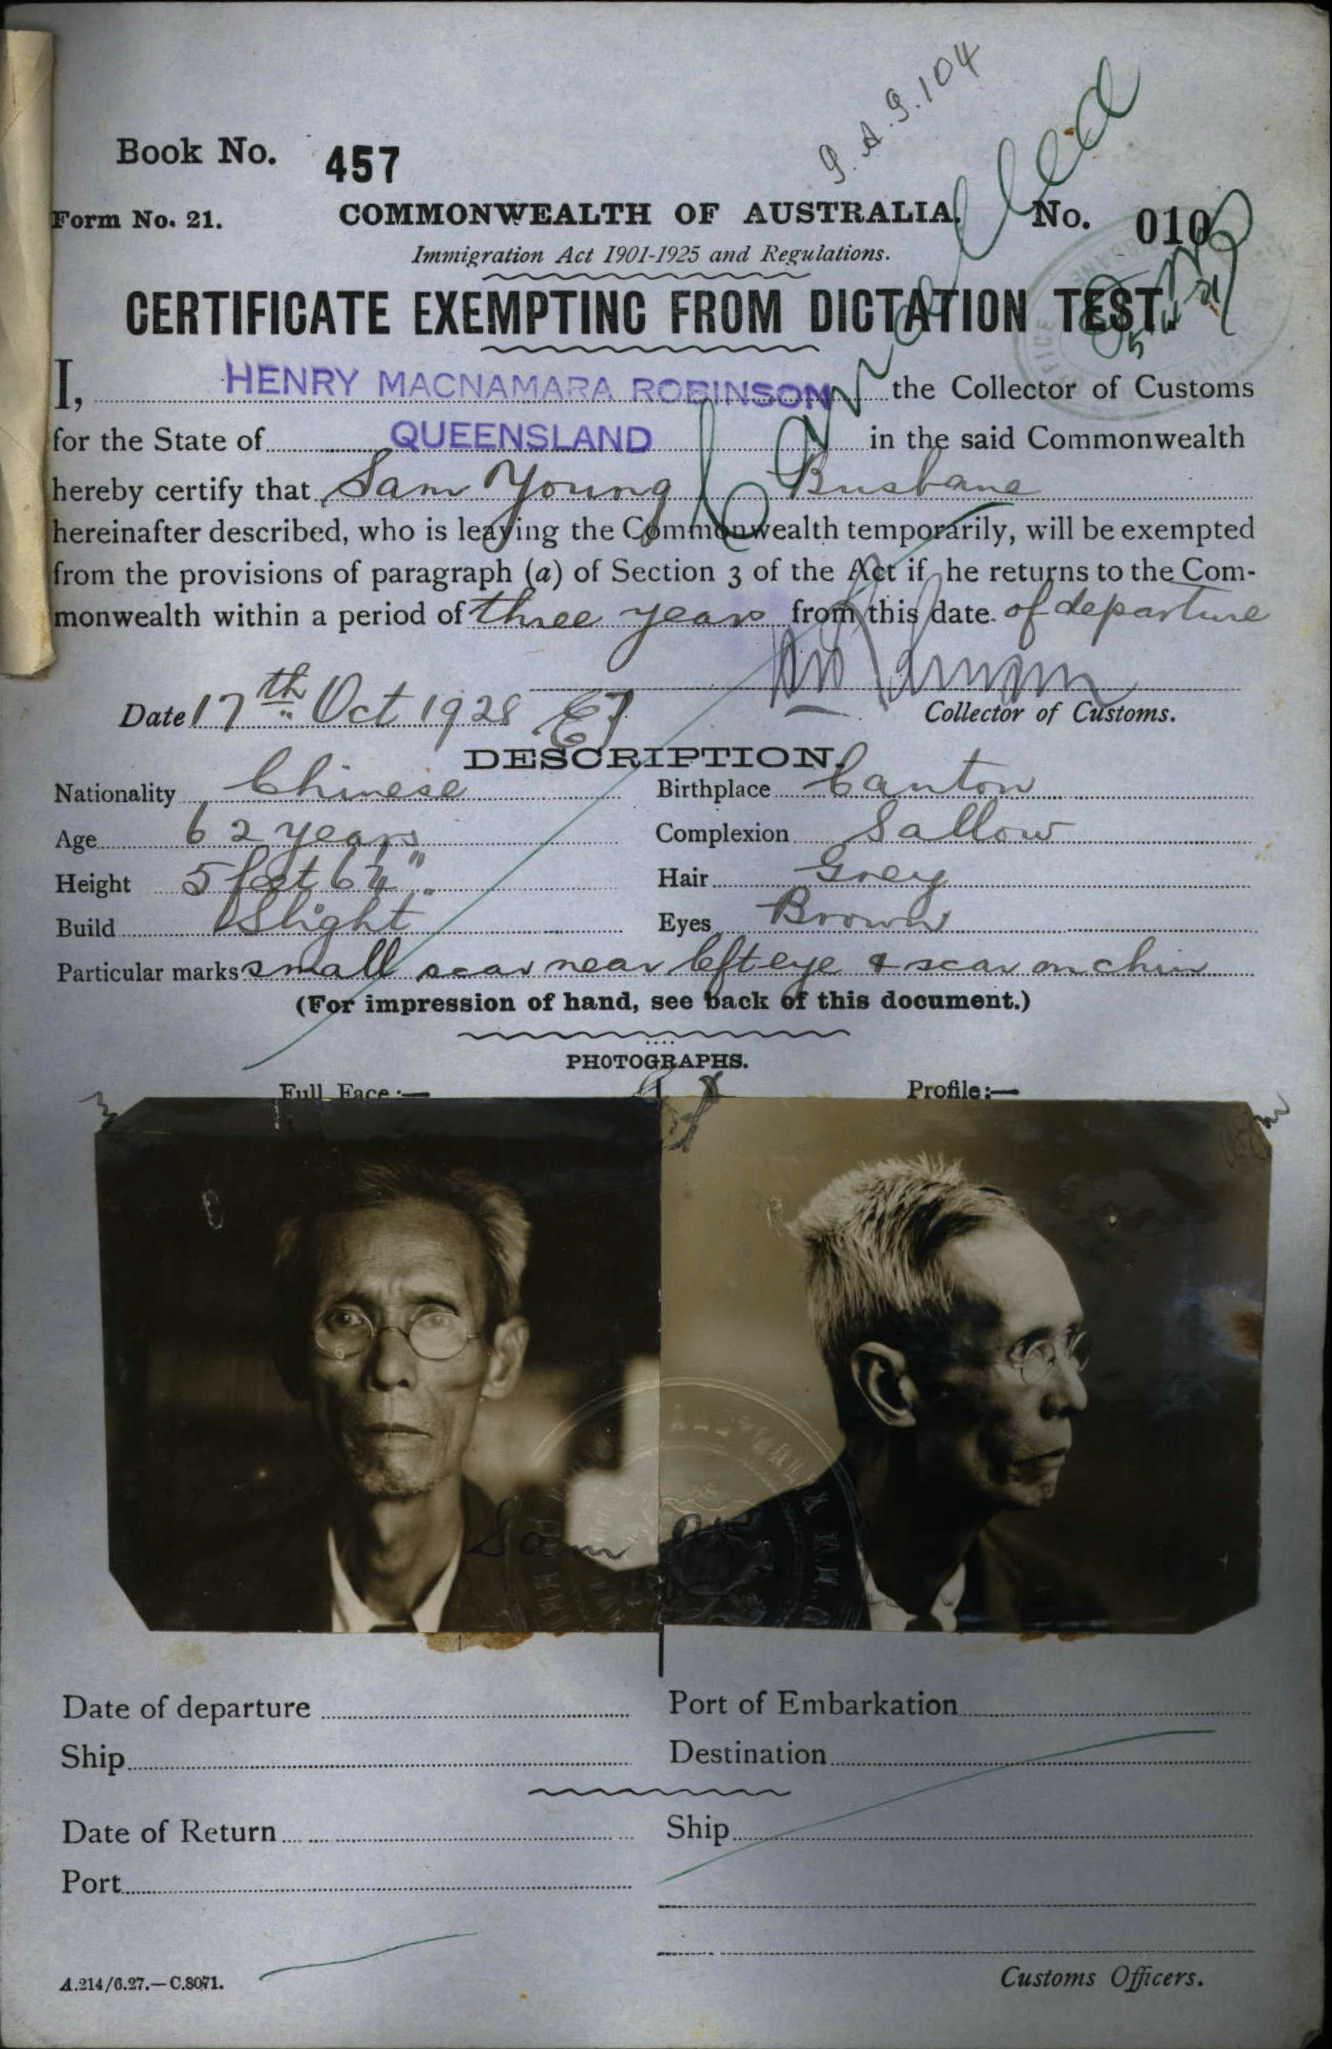 P.A.S.104
Book No. 457
Form No. 21. COMMONWEALTH OF AUSTRALIA. No. 010
Immigration Act 1901-1925 and Regulations.
CERTIFICATE EXEMPTING FROM DICTATION TEST.
Cancelled
I, HENRY MACNAMARA ROBINSON the Collector of Customs
for the State of QUEENSLAND in the said Commonwealth
hereby certify that Sam Young Brisbane
hereinafter described, who is leaving the Commonwealth temporarily, will be exempted
from the provisions of paragraph (a) of Section 3 of the Act if he returns to the Com-
monwealth within a period of three years from this date of departure
Date 17th Oct 1928
Collector of Customs.
DESCRIPTION.
Nationality Chinese Birthplace Canton
Age 62 years Complexion Sallow
Height 5 feet 6¼" Hair Grey
Build Slight Eyes Brown
Particular marks small scar near left eye & scar on chin
(For impression of hand, see back of this document.)
PHOTOGRAPHS.
Full Face:— Profile:—
Sam
Date of departure Port of Embarkation
Ship Destination
Date of Return Ship
Port
A.214/6.27.—C.8071. Customs Officers.